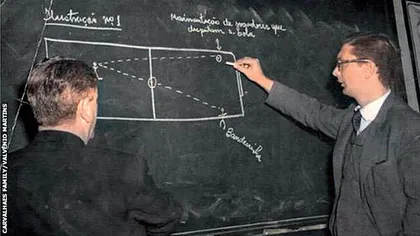 Ilustração nº 1
Movimentação de jogadores que
disputam a bola
Bandeirinha
CARVALHAES FAMILY/VALVÊNIO MARTINS